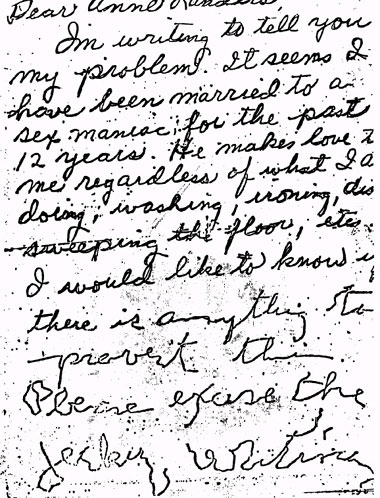 Dear Anne Landers,
Im writing to tell you
my problem. It seems I
have been married to a
sex maniac for the past
12 years. He makes love t
me regardless of what I a
doing, washing, ironing, dis
sweeping the floor, etc.
I would like to know i
there is anything to
prevert thi
Please excuse the
jerky, writing